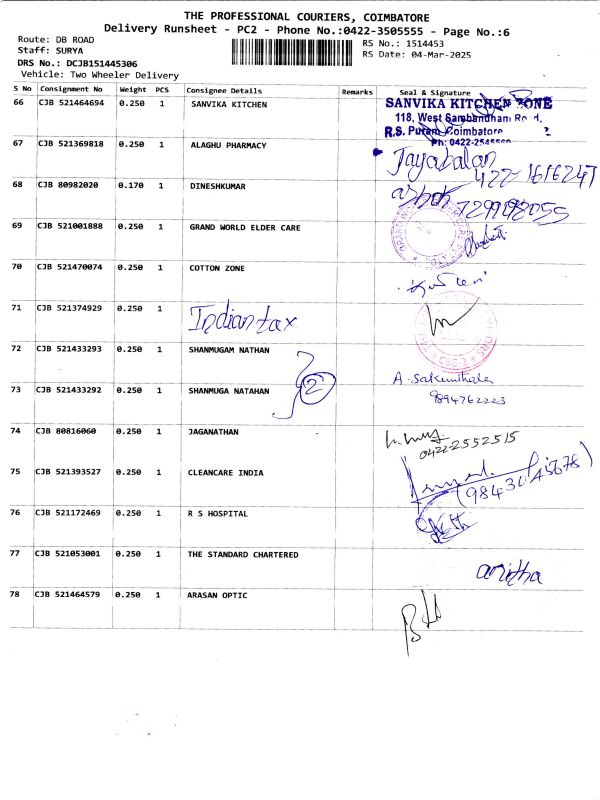 THE PROFESSIONAL COURIERS, COIMBATORE
Delivery Runsheet - PC2 - Phone No.:0422-3505555 - Page No.:6
Route: DB ROAD
RS No.: 1514453
Staff: SURYA
RS Date: 04-Mar-2025
DRS No.: DCJB151445306
Vehicle: Two Wheeler Delivery
S No Consignment No Weight PCS Consignee Details Remarks Seal & Signature
66 CJB 521464694 0.250 1 SANVIKA KITCHEN
SANVIKA KITCHEN ZONE
118, West Sambandham
R.S. Puram Coimbatore
Ph: 0422-
67 CJB 521369818 0.250 1 ALAGHU PHARMACY
Jayabalan
422-1616247
68 CJB 80982020 0.170 1 DINESHKUMAR
ashok
69 CJB 521001888 0.250 1 GRAND WORLD ELDER CARE
70 CJB 521470074 0.250 1 COTTON ZONE
71 CJB 521374929 0.250 1 Indiantax
72 CJB 521433293 0.250 1 SHANMUGAM NATHAN
2
73 CJB 521433292 0.250 1 SHANMUGA NATAHAN
A. Sakunthala
9894762223
74 CJB 80816060 0.250 1 JAGANATHAN
0422-2552515
75 CJB 521393527 0.250 1 CLEANCARE INDIA
76 CJB 521172469 0.250 1 R S HOSPITAL
77 CJB 521053001 0.250 1 THE STANDARD CHARTERED
anitha
78 CJB 521464579 0.250 1 ARASAN OPTIC